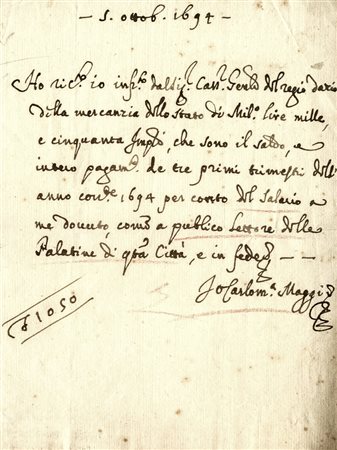 — 5. ottob. 1694 —
Ho ric.to io infr.to dal Sig.r Cass.r Gen.le del regio dazio
della mercanzia dello Stato di Mil.o lire mille,
e cinquanta Imp.li che sono il saldo, e
intero pagam.to de tre primi trimestri dell'
anno corr.te 1694 per conto del Salario a
me dovuto, como a publico Lettore delle
Palatine di q.ta Città, e in fede — —
Io Carlo M.a Maggi
£ 1050